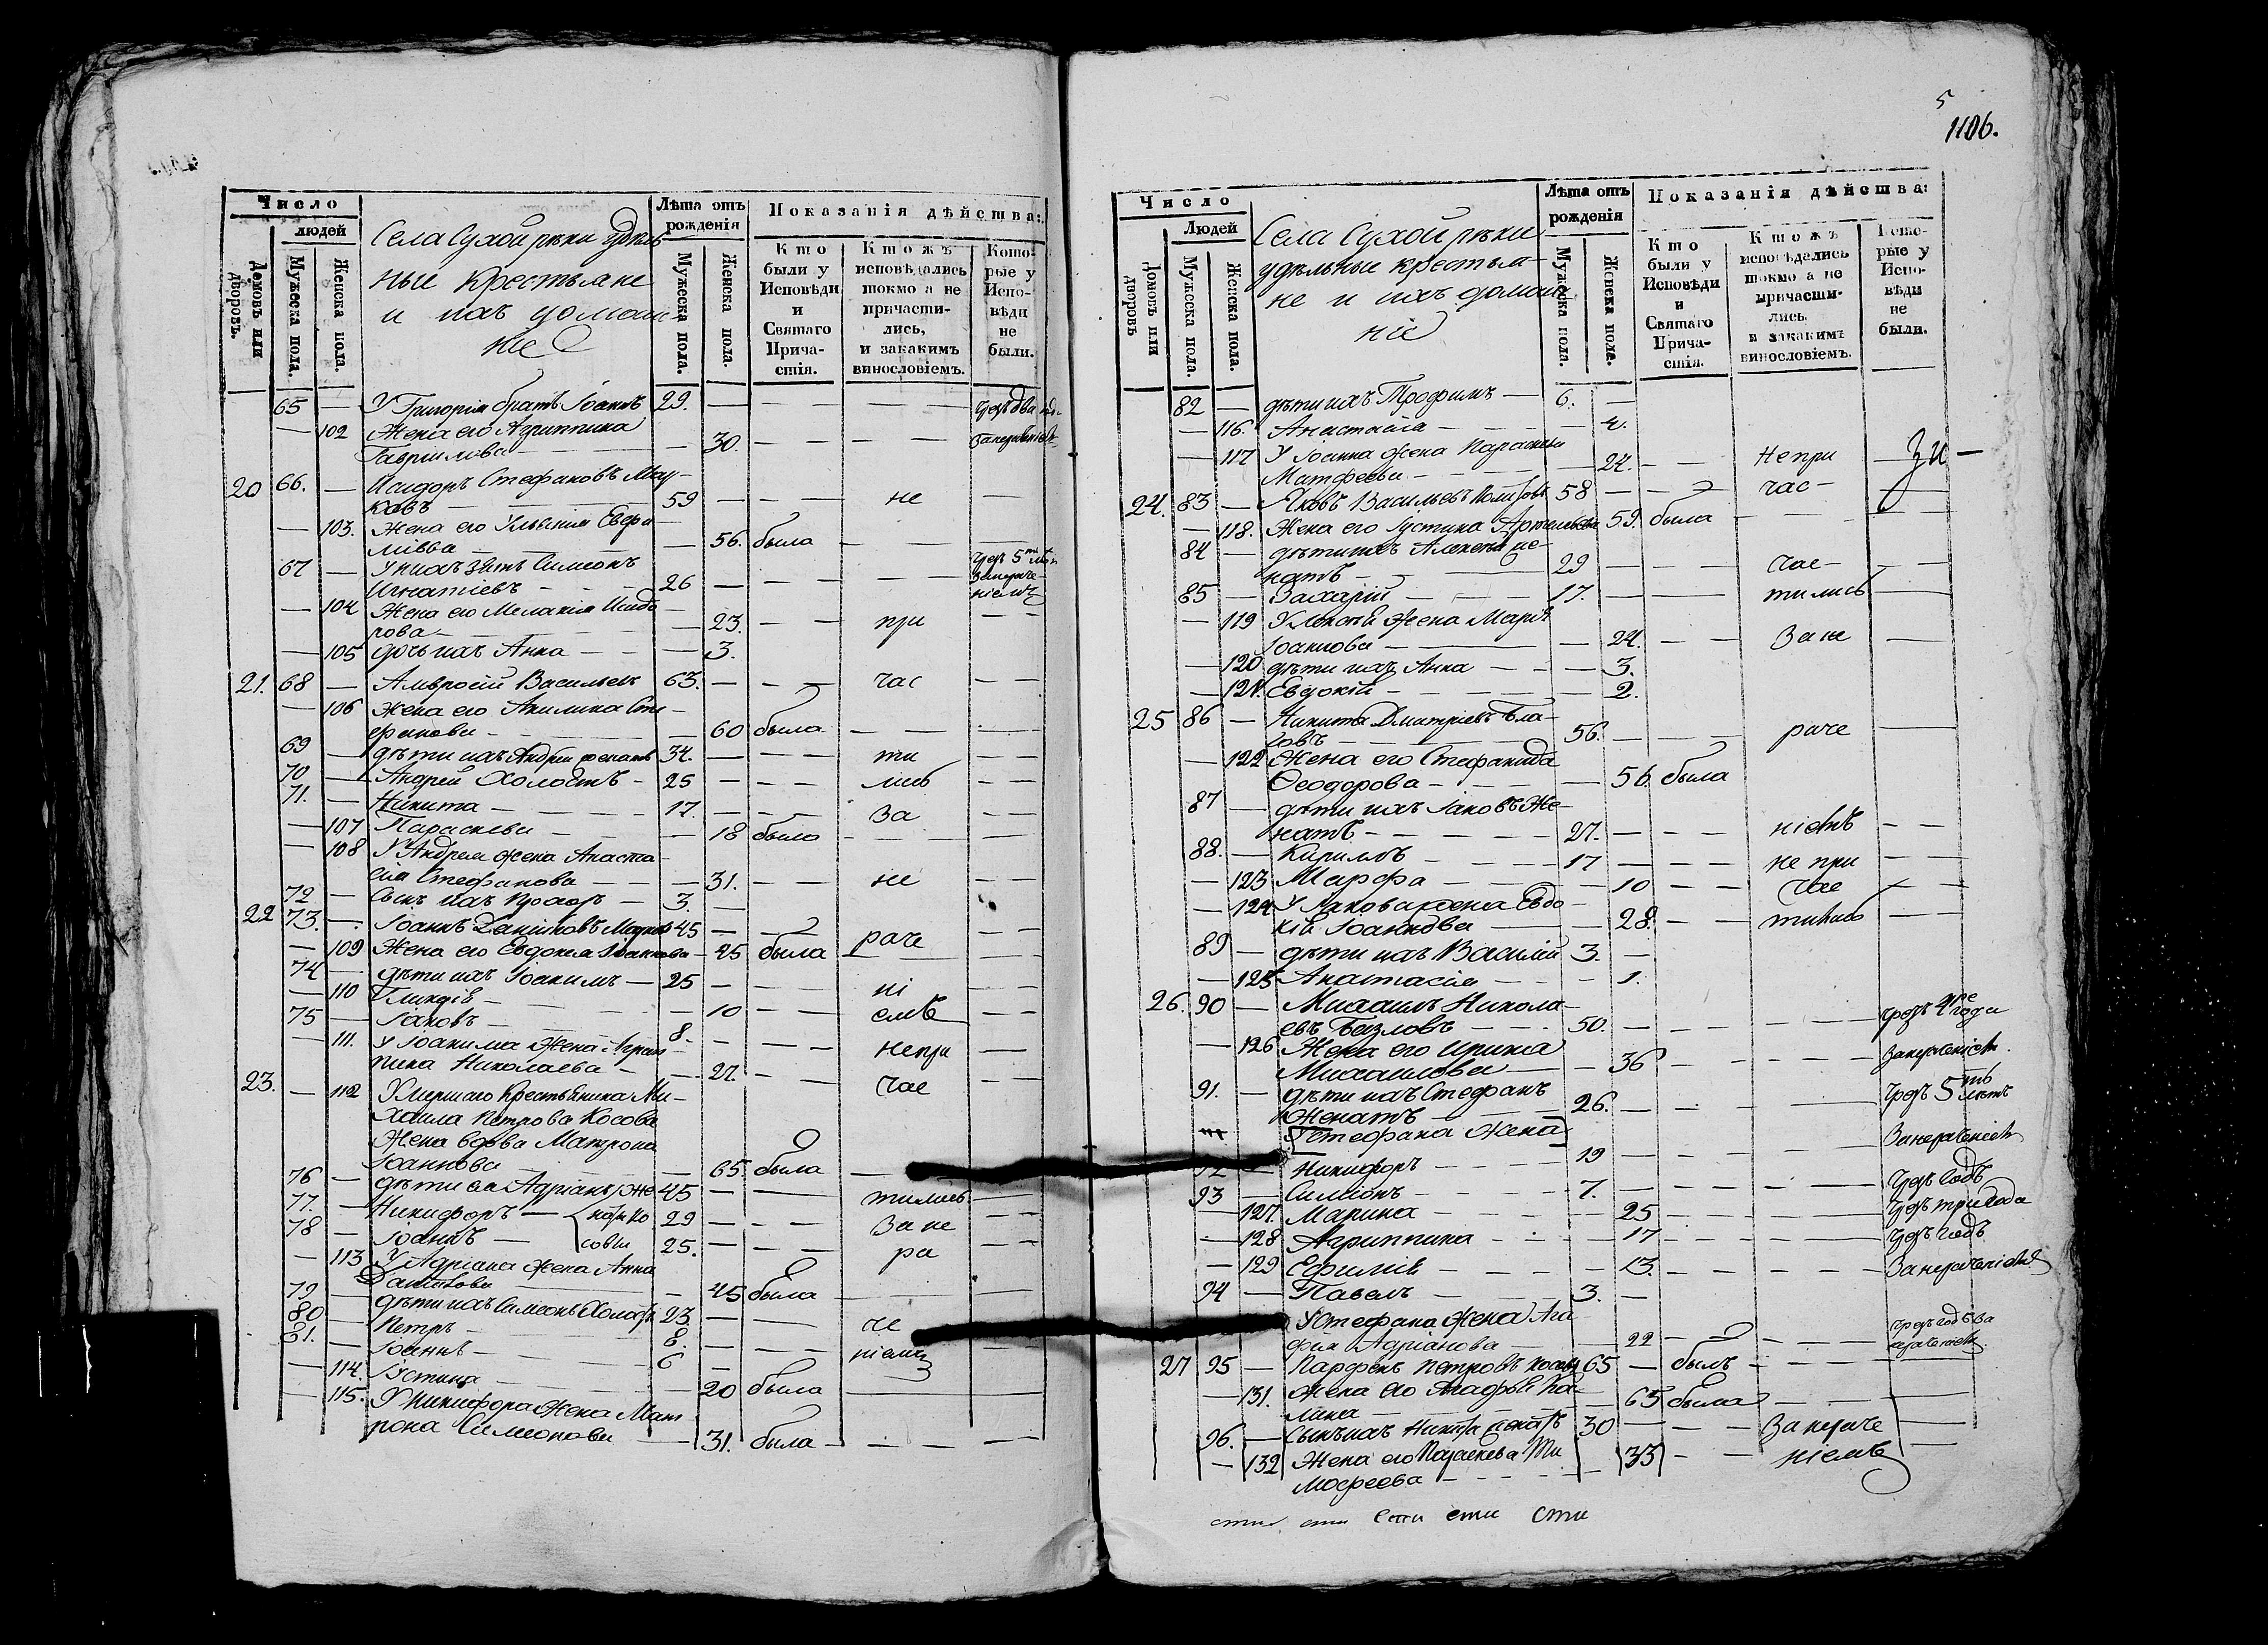 5
1106.
Число
людей
Домовъ или дворовъ.
Мужеска пола.
Женска пола.
Села Сухой рѣки удѣль
ные крестьяне
и ихъ домаш
ніе
Лѣта отъ рожденія
Мужеска пола.
Женска пола.
Показанія дѣйства:
Кто были у Исповѣди и Святаго Прича-стія.
Ктожъ исповѣдались токмо а не причасти-лись, и закакимъ винословіемъ.
Кото-рые у Испо-вѣди не были.
65 — У Григорія братъ Іоаннъ 29. — — — чрезъ два
— 102 Жена его Агриппина
Гавріилова — — 30. — — — —
20 66. — Исидоръ Стефановъ Мар-
ковъ — 59 — — — не —
— 103. Жена его
— 56. была — —
67 — У нихъ зять Симеонъ чрезъ 5
Игнатіевъ — 26 — — — —
— 104 Жена его Меланія Исидо
рова — — 23. — — при — —
— 105 дочь ихъ Анна — — 3.
21. 68 — Амвросій Васильевъ 63. — — — час — —
— 106 Жена его Акилина Сте-
фанова — — 60 была — — —
69 — дѣти ихъ Андрей женатъ 34. — — — ти — —
70 — Андрей Холостъ — 25 — — — лись — —
71. — Никита — 17. — — — за — —
— 107 Параскева — — 18 была — —
— 108 У Андрея жена Анаста-
сія Стефанова — — 31. — — не — —
72 — Сынъ ихъ Прохоръ — 3. —
22 73. — Іоаннъ Даніиловъ 45 — — раче — —
— 109 Жена его Евдокія Іоаннова — 45 была — —
74 — дѣти ихъ Іоакимъ — 25 — — — ні — —
— 110 — 10 — — емъ — —
75 — Іаковъ — 8. — —
— 111. У Іоакима жена Агрип-
пина Николаева — — 27. — — непри —
23. — 112 Умершаго Крестьянина Ми- час
хаила Петрова Косова
Жена вдова Матрона
Іоаннова — — 65. была —
76 — дѣти ея Адріанъ 45 — — тились —
77. — Никифоръ — 29 — — — За не —
78 — Іоаннъ — 25. — — — ра —
— 113 У Адріана жена Анна
— 45 была —
79 — дѣти ихъ Симеонъ Холостъ 23 — — че —
80 — Петръ — 8. — — ніемъ —
81. — Іоаннъ — 6 —
— 114. Устина — — 20 была —
— 115. У Никифора жена Мат
рона Симеонова — — 31. была — — — —
Число
Людей
Домовъ или дворовъ
Мужеска пола.
Женска пола.
Села Сухой рѣки
удѣльные крестья-
не и ихъ домаш
ніе
Лѣта отъ рожденія
Мужеска пола.
Женска пола.
Показанія дѣйства:
Кто были у Исповѣди и Святаго Прича-стія.
Ктожъ исповѣдались токмо а не причасти-лись, и закакимъ винословіемъ.
Кото-рые у Испо-вѣди не были.
82 — дѣти ихъ Трофимъ — 6. —
— 116. Анастасія — — 4.
— 117 У Іоанна жена Параскева
Матфеева — — 24. — — Непри —
24. 83 — Яковъ Васильевъ 58 — — час — —
— 118. Жена его Іустина — 59. была — —
84 — дѣти ихъ Алексей же-
натъ — 29 — — — час — —
85 — Захарій — 17. — — тились —
— 119 У Алексея жена Марія
Іоаннова — — 24. — — За не —
— 120 дѣти ихъ Анна — — 3.
— 121. Евдокія — — 2.
25 86 — Никита Дмитріевъ
56. — — — раче —
— 122 Жена его Стефанида
Феодорова — — 56. была
87 — дѣти ихъ Іаковъ Же-
натъ — 27. — — — ніемъ — —
88. — Кирилъ — 17 — — — не при — —
— 123 Марфа — — 10 — — час — —
— 124 У Іакова жена Евдо-
кія Іоаннова — — 28. — — тились — —
89 — дѣти ихъ Василій 3. —
— 125 Анастасія — — 1.
26. 90 — Михаилъ Никола-
евъ — 50. — — — — чрезъ 4ре года
— 126 Жена его Ирина
Михаилова — — 36 — — — — — За нераченіемъ.
91. — дѣти ихъ Стефанъ чрезъ 5ть лѣтъ
Женатъ — 26. — — —
У Стефана жена За нераченіемъ
92 — Никифоръ — 19 — — — — — чрезъ годъ
93 — Симеонъ — 7. — — — —
— 127. Марина — — 25 — — — — чрезъ три года
— 128 Агриппина — — 17 — — — — чрезъ годъ
— 129 Ефимія — — 13. — — — — За нераченіемъ
94 — Павелъ — 3. —
У Стефана жена Ага чрезъ годъ за
фія Адріанова — — 22 — — — — нераченіемъ.
27 95 — Парфенъ Петровъ Косовъ 65 — былъ — — —
— 131. Жена его Агафья Ка-
лина — — 65 была —
96. — Сынъ ихъ Никита женатъ 30 — — — За нераче —
— 132 Жена его Параскева Ти
мофеева — — 33 — — ніемъ —
сти сти сти сти сти